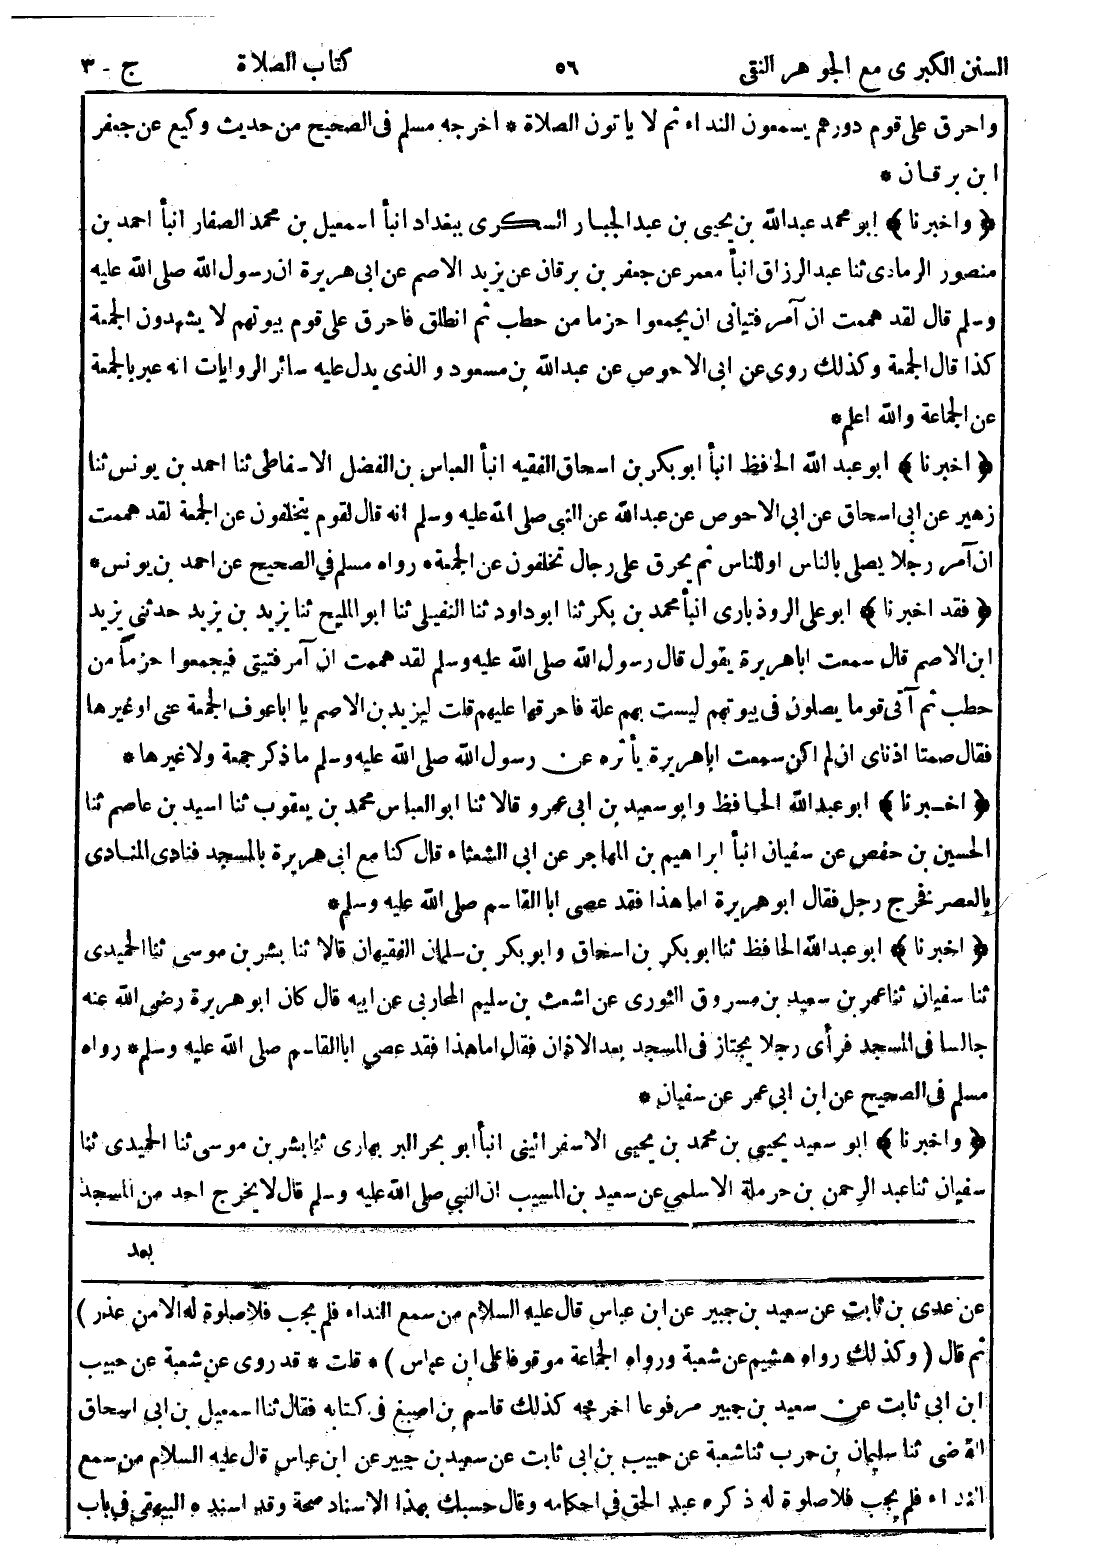 السنن الكبرى مع الجوهر النقى ٥٦ كتاب الصلاة ج - ٣
واحرق على قوم دورهم يسمعون النداء ثم لا ياتون الصلاة * اخرجه مسلم فى الصحيح من حديث وكيع عن جعفر
ابن برقان *
﴿ واخبرنا ﴾ ابو محمد عبدالله بن يحيى بن عبدالجبار السكرى ببغداد انبأ اسمعيل بن محمد الصفار انبأ احمد بن
منصور الرمادى ثنا عبدالرزاق انبأ معمر عن جعفر بن برقان عن يزيد الاصم عن ابى هريرة ان رسول الله صلى الله عليه
وسلم قال لقد هممت ان آمر فتيانى ان يجمعوا حزما من حطب ثم انطلق فاحرق على قوم بيوتهم لا يشهدون الجمعة
كذا قال الجمعة وكذلك روى عن ابى الاحوص عن عبدالله بن مسعود والذى يدل عليه سائر الروايات انه عبر بالجمعة
عن الجماعة والله اعلم *
﴿ اخبرنا ﴾ ابو عبد الله الحافظ انبأ ابو بكر بن اسحاق الفقيه انبأ العباس بن الفضل الاسفاطى ثنا احمد بن يونس ثنا
زهير عن ابى اسحاق عن ابى الاحوص عن عبدالله عن النبى صلى الله عليه وسلم انه قال لقوم يتخلفون عن الجمعة لقد هممت
ان آمر رجلا يصلى بالناس او للناس ثم يحرق على رجال تخلفون عن الجمعة * رواه مسلم فى الصحيح عن احمد بن يونس *
﴿ فقد اخبرنا ﴾ ابو على الروذبارى انبأ محمد بن بكر ثنا ابو داود ثنا النفيلى ثنا ابو المليح ثنا يزيد بن يزيد حدثنى يزيد
ابن الاصم قال سمعت اباهريرة يقول قال رسول الله صلى الله عليه وسلم لقد هممت ان آمر فتيتى فيجمعوا حزماً من
حطب ثم آتى قوما يصلون فى بيوتهم ليست بهم علة فاحرقها عليهم قلت ليزيد بن الاصم يا اباعوف الجمعة عنى او غيرها
فقال صمتا اذناى ان لم اكن سمعت اباهريرة يأثره عن رسول الله صلى الله عليه وسلم ما ذكر جمعة ولا غيرها *
﴿ اخبرنا ﴾ ابو عبدالله الحافظ وابو سعيد بن ابى عمرو قالا ثنا ابو العباس محمد بن يعقوب ثنا اسيد بن عاصم ثنا
الحسين بن حفص عن سفيان انبأ ابراهيم بن المهاجر عن ابى الشعثاء قال كنا مع ابى هريرة بالمسجد فنادى المنادى
بالعصر فخرج رجل فقال ابو هريرة اما هذا فقد عصى ابا القاسم صلى الله عليه وسلم *
﴿ اخبرنا ﴾ ابو عبدالله الحافظ ثنا ابو بكر بن اسحاق وابو بكر بن سلمان الفقيهان قالا ثنا بشر بن موسى ثنا الحميدى
ثنا سفيان ثنا عمر بن سعيد بن مسروق الثورى عن اشعث بن سليم المحاربى عن ابيه قال كان ابو هريرة رضى الله عنه
جالسا فى المسجد فرأى رجلا يجتاز فى المسجد بعد الاذان فقال اما هذا فقد عصى ابا القاسم صلى الله عليه وسلم * رواه
مسلم فى الصحيح عن ابن ابى عمر عن سفيان *
﴿ واخبرنا ﴾ ابو سعيد يحيى بن محمد بن يحيى الاسفرائينى انبأ ابو بحر البربهارى ثنا بشر بن موسى ثنا الحميدى ثنا
سفيان ثنا عبد الرحمن بن حرملة الاسلمى عن سعيد بن المسيب ان النبى صلى الله عليه وسلم قال لا يخرج احد من المسجد
بعد
عن عدى بن ثابت عن سعيد بن جبير عن ابن عباس قال عليه السلام من سمع النداء فلم يجب فلا صلوة له الا من عذر )
ثم قال ( وكذلك رواه هشيم عن شعبة ورواه الجماعة موقوفا على ابن عباس ) * قلت * قد روى عن شعبة عن حبيب
ابن ابى ثابت عن سعيد بن جبير مرفوعا اخرجه كذلك قاسم بن اصبغ فى كتابه فقال ثنا اسمعيل بن ابى اسحاق
القاضى ثنا سليمان بن حرب ثنا شعبة عن حبيب بن ابى ثابت عن سعيد بن جبير عن ابن عباس قال عليه السلام من سمع
النداء فلم يجب فلا صلوة له ذكره عبد الحق فى احكامه وقال حسبك بهذا الاسناد صحة وقد اسنده البيهقى فى باب